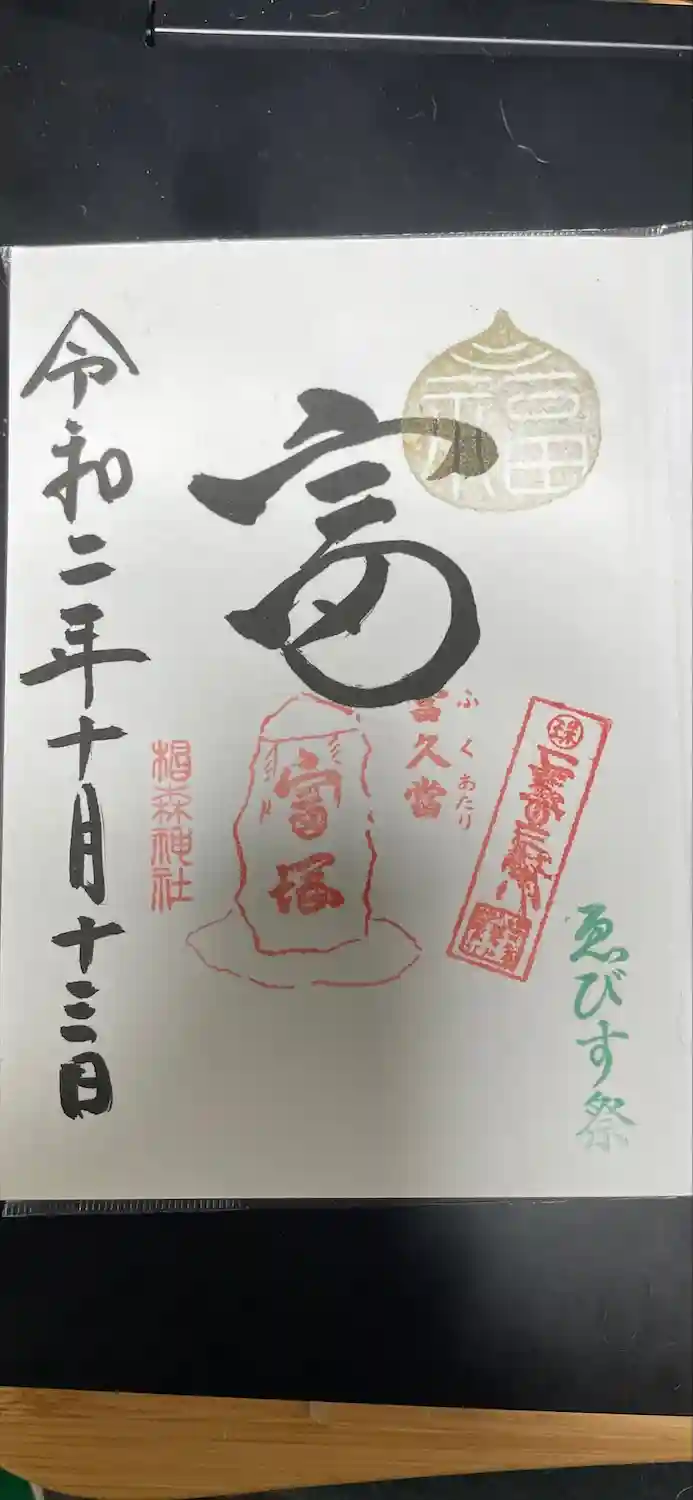 ゑびす祭
福
富
富久當
ふくあたり
富塚
椙森神社
令和二年十月十三日